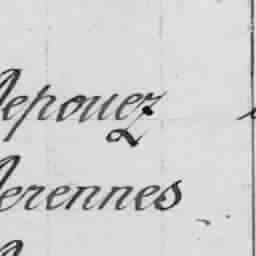 Depouez
Derennes